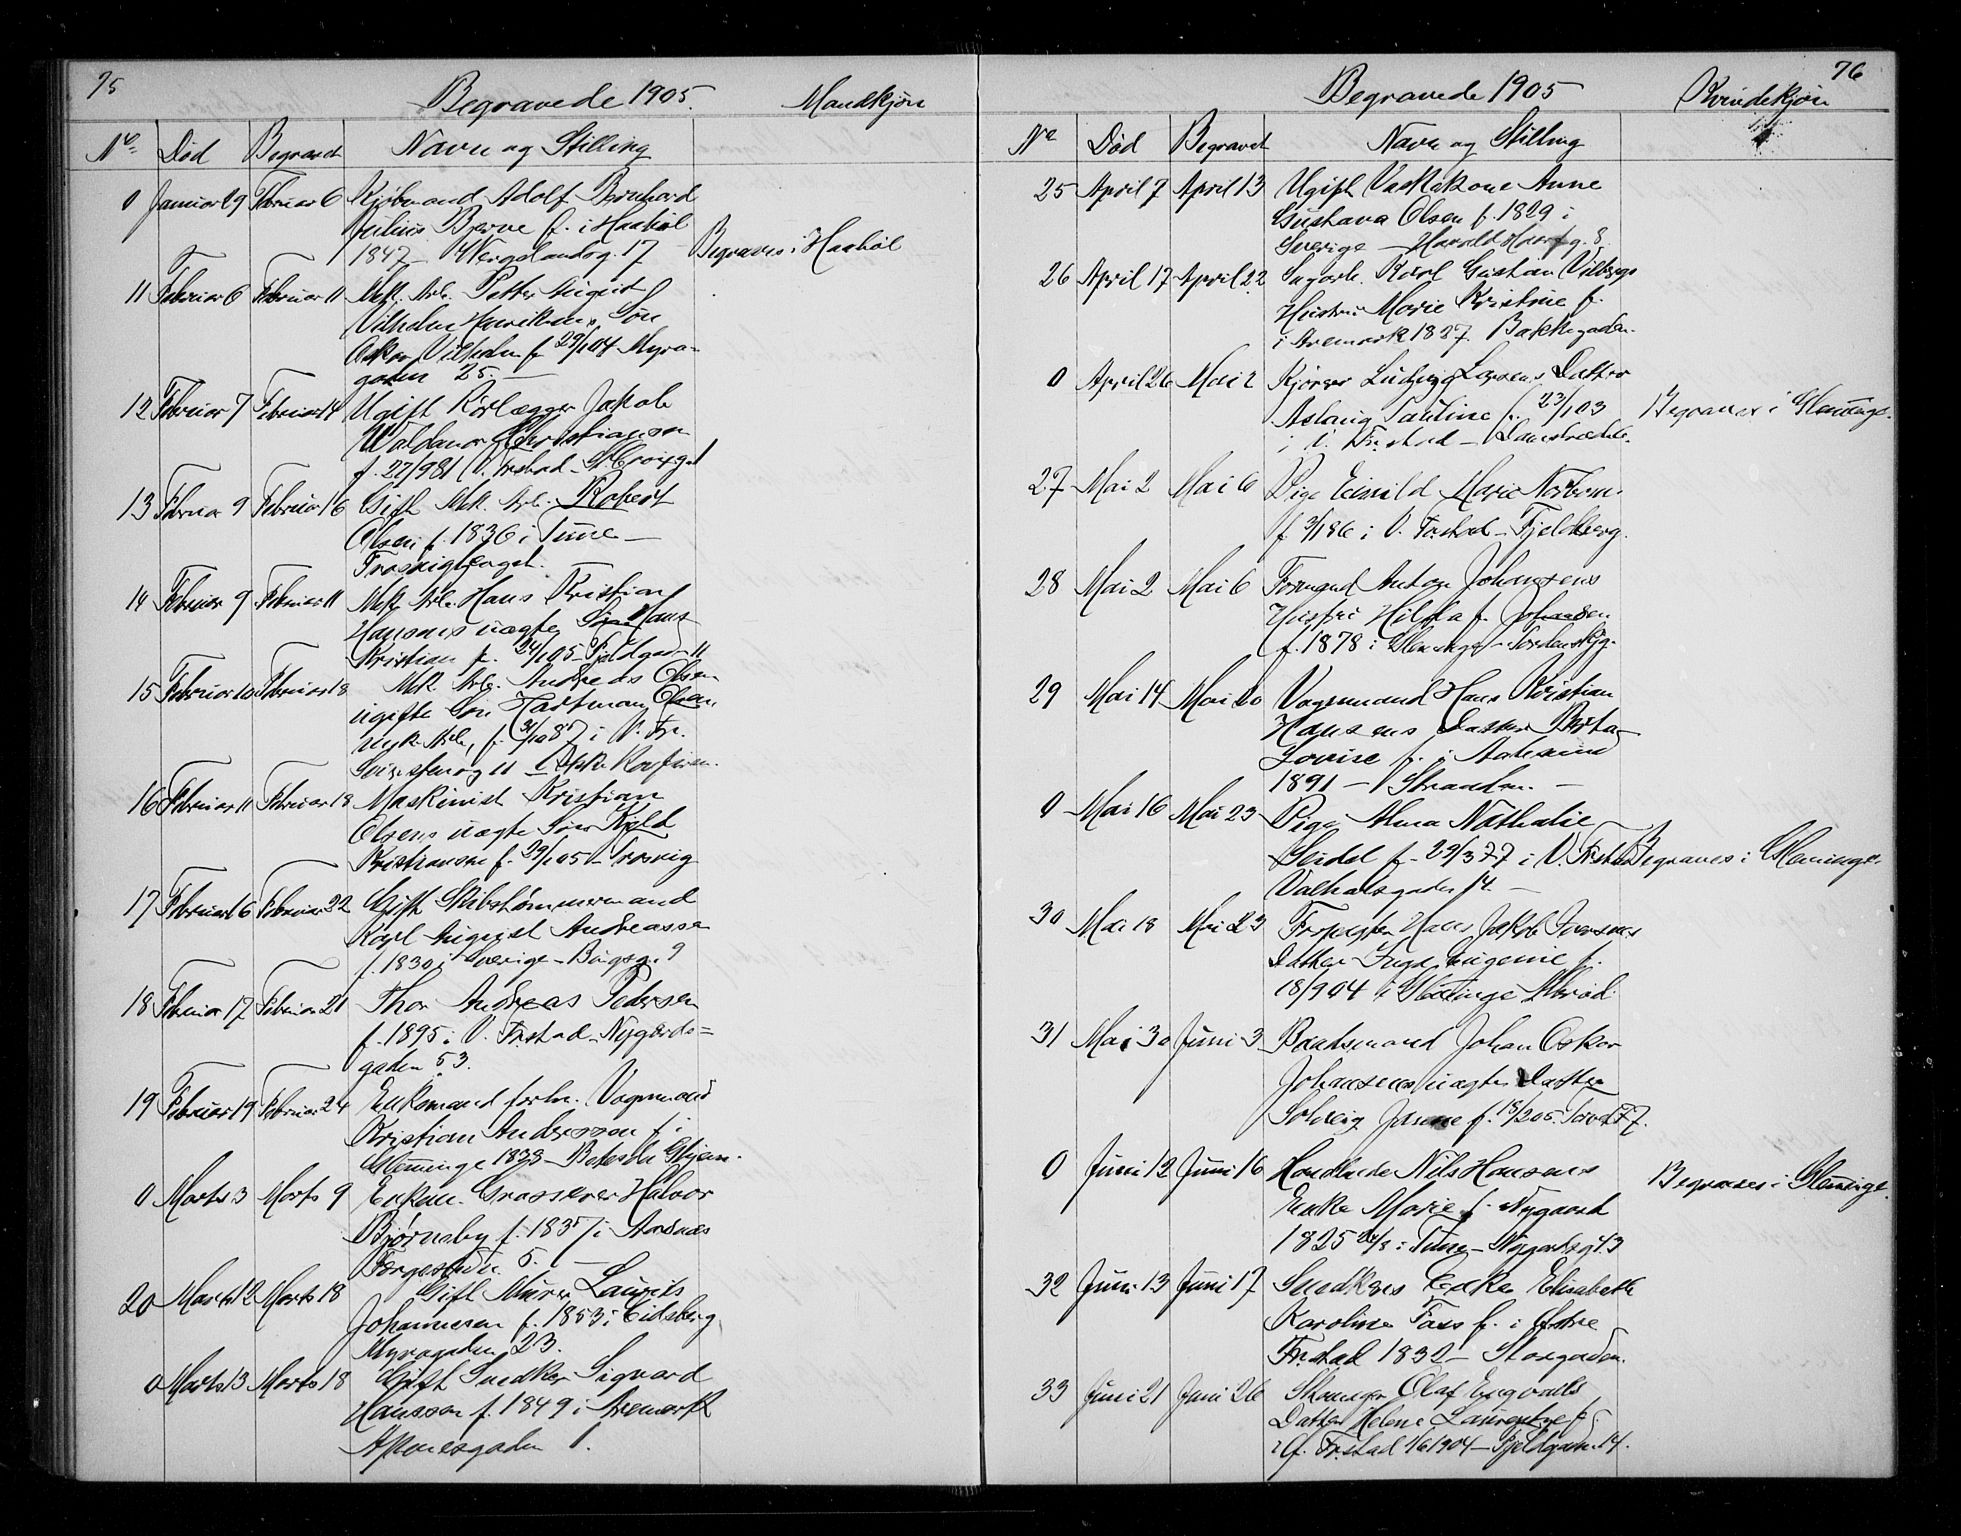 75
Begravede 1905. Mandkjøn
No. Død Begravet Navn og Stilling
0 Januar 29 Februar 6 Kjøbmand Adolf Bernhard
Julius Bjerve f. i Haabøl
1847 - Wergelandsg. 17 - Begraves i Haabøl
11 Februar 6 Februar 11 Mek. Arb. Petter August
Vilhelm Henriksens Søn
Oskar Vilhelm f. 29/1 04 Myra-
gaden 25. -
12 Februar 7 Februar 14 Ugift Rørlægger Jakob
Waldemar Christiansen
f. 27/9 81 V. Frstad - St. Croixgd
13 Februar 9 Februar 16 Gift Mek. Arb. Robert
Olsen f. 1836 i Tune -
14 Februar 9 Februar 11 Mek. Arb. Hans Kristian
Hansens uægte Søn Hans
Kristian f. 24/1 05 - Fjeldgad. 11
15 Februar 10 Februar 18 Mek. Arb. Andreas Olsen
ugifte Søn Hartmann Olsen,
f. 31/10 87 i V. Fr.
16 Februar 11 Februar 18 Maskinist Kristian
Olsens uægte Søn Kjeld
Kristiansen f. 29/1 05 - Trosvig
17 Februar 16 Februar 22 Gift Skibstømmermand
Karl August Andreassen
f. 1830 i Sverige - Bøgsg. 9
18 Februar 17 Februar 21 Thor Andreas Pedersen
f. 1895 i V. Frstad - Nygårds=
gaden 53.
19 Februar 19 Februar 24 Enkemand forhv. Vognmand
Kristian Anderssen f. i
Glemminge 1828 - Betesda Hjem.
0 Marts 3 Marts 9 Enkem. Grosserer Halvor
Bjørneby f. 1835 i
Færgestedn. 5. -
20 Marts 12 Marts 18 Gift Murer Laurits
Johannesen f. 1853 i Eidsberg
Myragaden 23.
0 Marts 13 Marts 18 Gift Snedker Sigvard
Hanssen f. 1849 i Aremark
Agnesgaden 1.
76
Begravede 1905 Kvindekjøn
No Død Begravet Navn og Stilling
25 April 7 April 13 Ugift Vaskekone Anne
Gustava Olsen f. 1829 i
Sverige - Harald Haarfg. 8.
26 April 17 April 22 Sagarb. Karl Gustav Vilbergs
Hustru Marie Kristine f.
i Aremark 1837. Bakkegaden.
0 April 26 Mai 2 Kjører Ludvig Larsens Datter
Aslaug Pauline f. 23/1 03 Begraves i Glemminge.
i V. Frstad - Damstrædet.
27 Mai 2 Mai 6 Pige Ecinild Marie Norbom.
f. 3/1 86 i V. Frstad - Fjeldberg.
28 Mai 2 Mai 6 Formand Anton Johansens
Hustru Hilda f. Johansen
f. 1878 i Glemminge - Tordenskjg.
29 Mai 14 Mai 20 Vognmand Hans Kristian
Hansens Datter Berta
Lovise f. i
1891 - Stranden. -
0 Mai 16 Mai 23 Pige Alma Nathalie
Seidel f. 29/3 77 i V. Frstad Begraves i Glemminge.
Valhalsgaden 14. -
30 Mai 18 Mai 23 Forpagter Hans Jakob Iversens
Datter Inga Eugenie f.
18/9 04 i Glemminge
31 Mai 30 Juni 3 Baadsmand Johan Oskar
Johansens uægte Datter
Solveig f. 18/2 05.
0 Juni 12 Juni 16 Handlende Nils Hansens
Enke Marie f. Nygaard Begraves i Glemminge.
1825 i Tune - Nygårdsg 43
32 Juni 13 Juni 17 Snedkers Enke Elisabeth
Karoline Foss f. i Østre
Frstad 1832 - Storgaden.
33 Juni 21 Juni 26 Skomager Olaf Engvalls
Datter Helene Laurentze f.
i V. Frstad 1/6 1904 - Fjeldgaden 14.